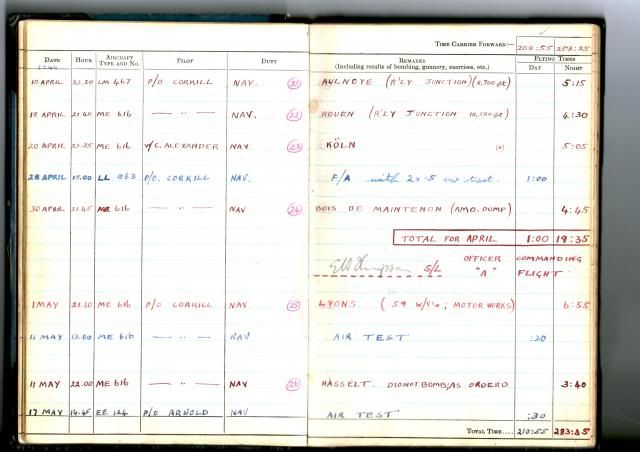 TIME CARRIED FORWARD:— 208:55 253:25
DATE HOUR AIRCRAFT TYPE AND NO. PILOT DUTY REMARKS (Including results of bombing, gunnery, exercises, etc.) FLYING TIMES DAY NIGHT
10 APRIL 23.20 LM 467 P/O CORKILL NAV. 21 AULNOYE (R'LY JUNCTION) 5:15
18 APRIL 21.40 ME 616 — " — NAV. 22 ROUEN (R'LY JUNCTION 10,500 ft) 4:30
20 APRIL 23.25 ME 616 W/C. ALEXANDER NAV. 23 KÖLN 5:05
28 APRIL 15.00 LL 263 P/O. CORKILL NAV. F/A with 1:00
30 APRIL 21.45 ME 616 — " — NAV 24 BOIS DE MAINTENON (AMO. DUMP) 4:45
TOTAL FOR APRIL 1:00 19:35
S/L OFFICER COMMANDING
"A" FLIGHT
1 MAY 21.20 ME 616 P/O CORKILL NAV 25 LYONS MOTOR WORKS) 6:55
11 MAY 13.00 ME 616 — " — NAV AIR TEST :30
11 MAY 22.00 ME 616 — " — NAV 26 HASSELT. DID NOT BOMB; AS ORDERD 3:40
17 MAY 14.45 EE 124 P/O ARNOLD NAV AIR TEST :30
TOTAL TIME.... 210:55 283:35